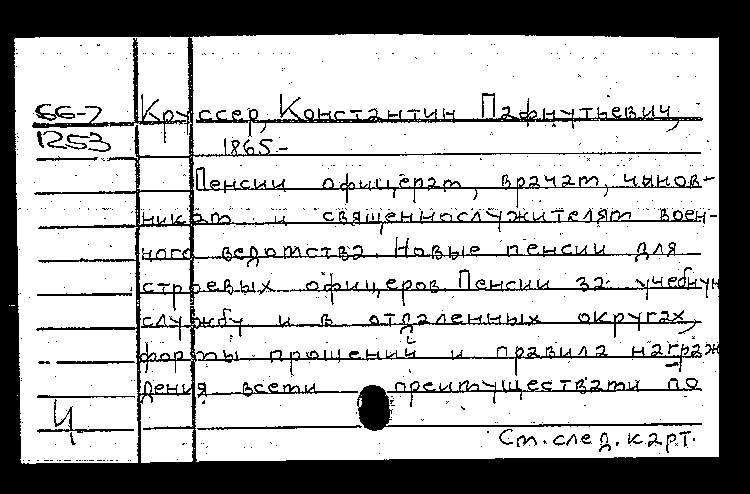 66-2 Круссер, Константин Пафнутьевич,
1253 1865-
Пенсии офицерам, врачам, чинов-
никам и священнослужителям воен-
ного ведомства. Новые пенсии для
строевых офицеров. Пенсии за учебную
службу и в отдаленных округах,
формы прошений и правила награж
дения всеми преимуществами по
Ч
См. след. карт.